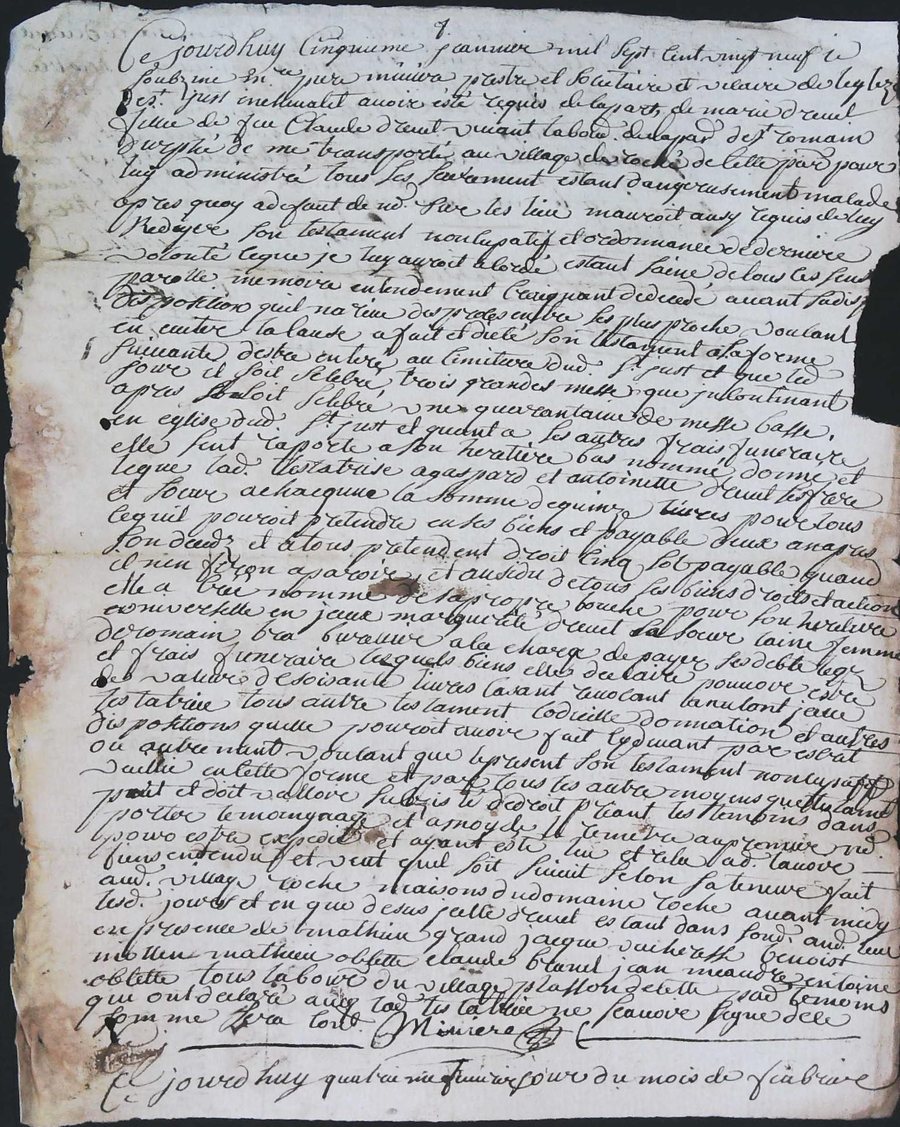 Ce jourdhuy Cinquieme jeanvier mil sept cent vingt neuf je
soubsine en re pera miviera prestre et societaire et vicaire de leglize
de st just inchevalet avoir esté requis de la part de marie dreuet
fillie de feu Claude dreuet vivant labour de la par de st romain
Durphé de me transporté au village de roche de cette par pour
luy administré tous les sacrement estant dangereusement malade
apres quoy adefaut de nd sur les lieu mauroit ausy requis de luy
Rediger son testament noncupatif et ordonnance de derniere
volonté ceque je luy auroit acordé estant saine de tous ses sens
parolle memoire entendement Craignant de decedé avant
disposition quil na rien des proces entre ses plus proche voulant
en eviter la cause a fait et dicté son testament a la forme
suivante destre enteré au cimitiere dud st just et que led
jour il soit selebré trois grandes messe que incontinant
apres soit selebré une quarantaine de messe basse
en eglise dud st just et quant a ses autres frais funeraire
elle sent raporte a son heritiere bas nommé donne et
legue lad testatrise a gaspard et antoinette dreuet ses frere
et soeur a chacqune la somme de quinze livres pour tous
cequil pouroit pretendre en ses biens et payable deux an apres
son deced et a tous pretendent droit cinq sol payable quand
il nen feron aparoir et au sidu de tous ses biens droits et action
elle a nommé de sa propre bouche pour son heritiere
universelle en jeaux marguerite dreuet sa soeur laine femme
de romain a la charge de payer ses debte legz
et frais funeraire lesquels biens elle declaire pouvoir estre
de valeur de soisante livres cassant revocant lanulant jceue
testatrice tous autre testament codicille donnation et autres
dispositions quelle pourroit avoir fait cydevant par escrit
ou autrement voulant que le present son testament noncupatif
vallie en cette forme et par tous les autre moyens
peut et doit valloir suivis le de droit priant les temoins dans
porter temoingnage et a moy de le remetre au premier nd
pour estre expedié et ayant esté lui et relu ad lavoir
bien entendu et veut quil soit suivit selon sa teneure fait
aud village roche maisons du domaine roche avant midy
lesd jours et en que desus jcelle dreuet estant dans son aud leur
en presence de mathieu grand jacque vacheresse benoist
mathieu oblette claude brunel jean meandre entoine
oblette tous labour du village plasson de cette par temoins
qui ont declaré aveq lad testatrice ne scavoir signe dele
somme Miviere
Ce jourdhuy quatrieme jour du mois de feubrier